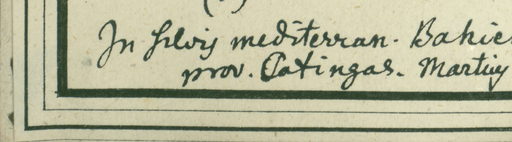 In silvis mediterran. Bahie
prov. Catingas. Martius